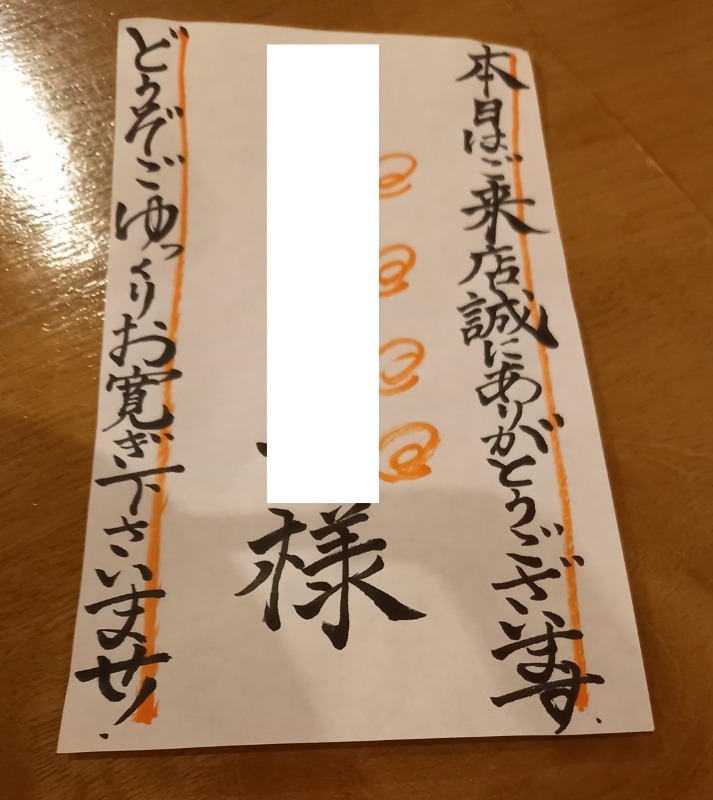 本日はご来店誠にありがとうございます.
様
どうぞごゆっくりお寛ぎ下さいませ!